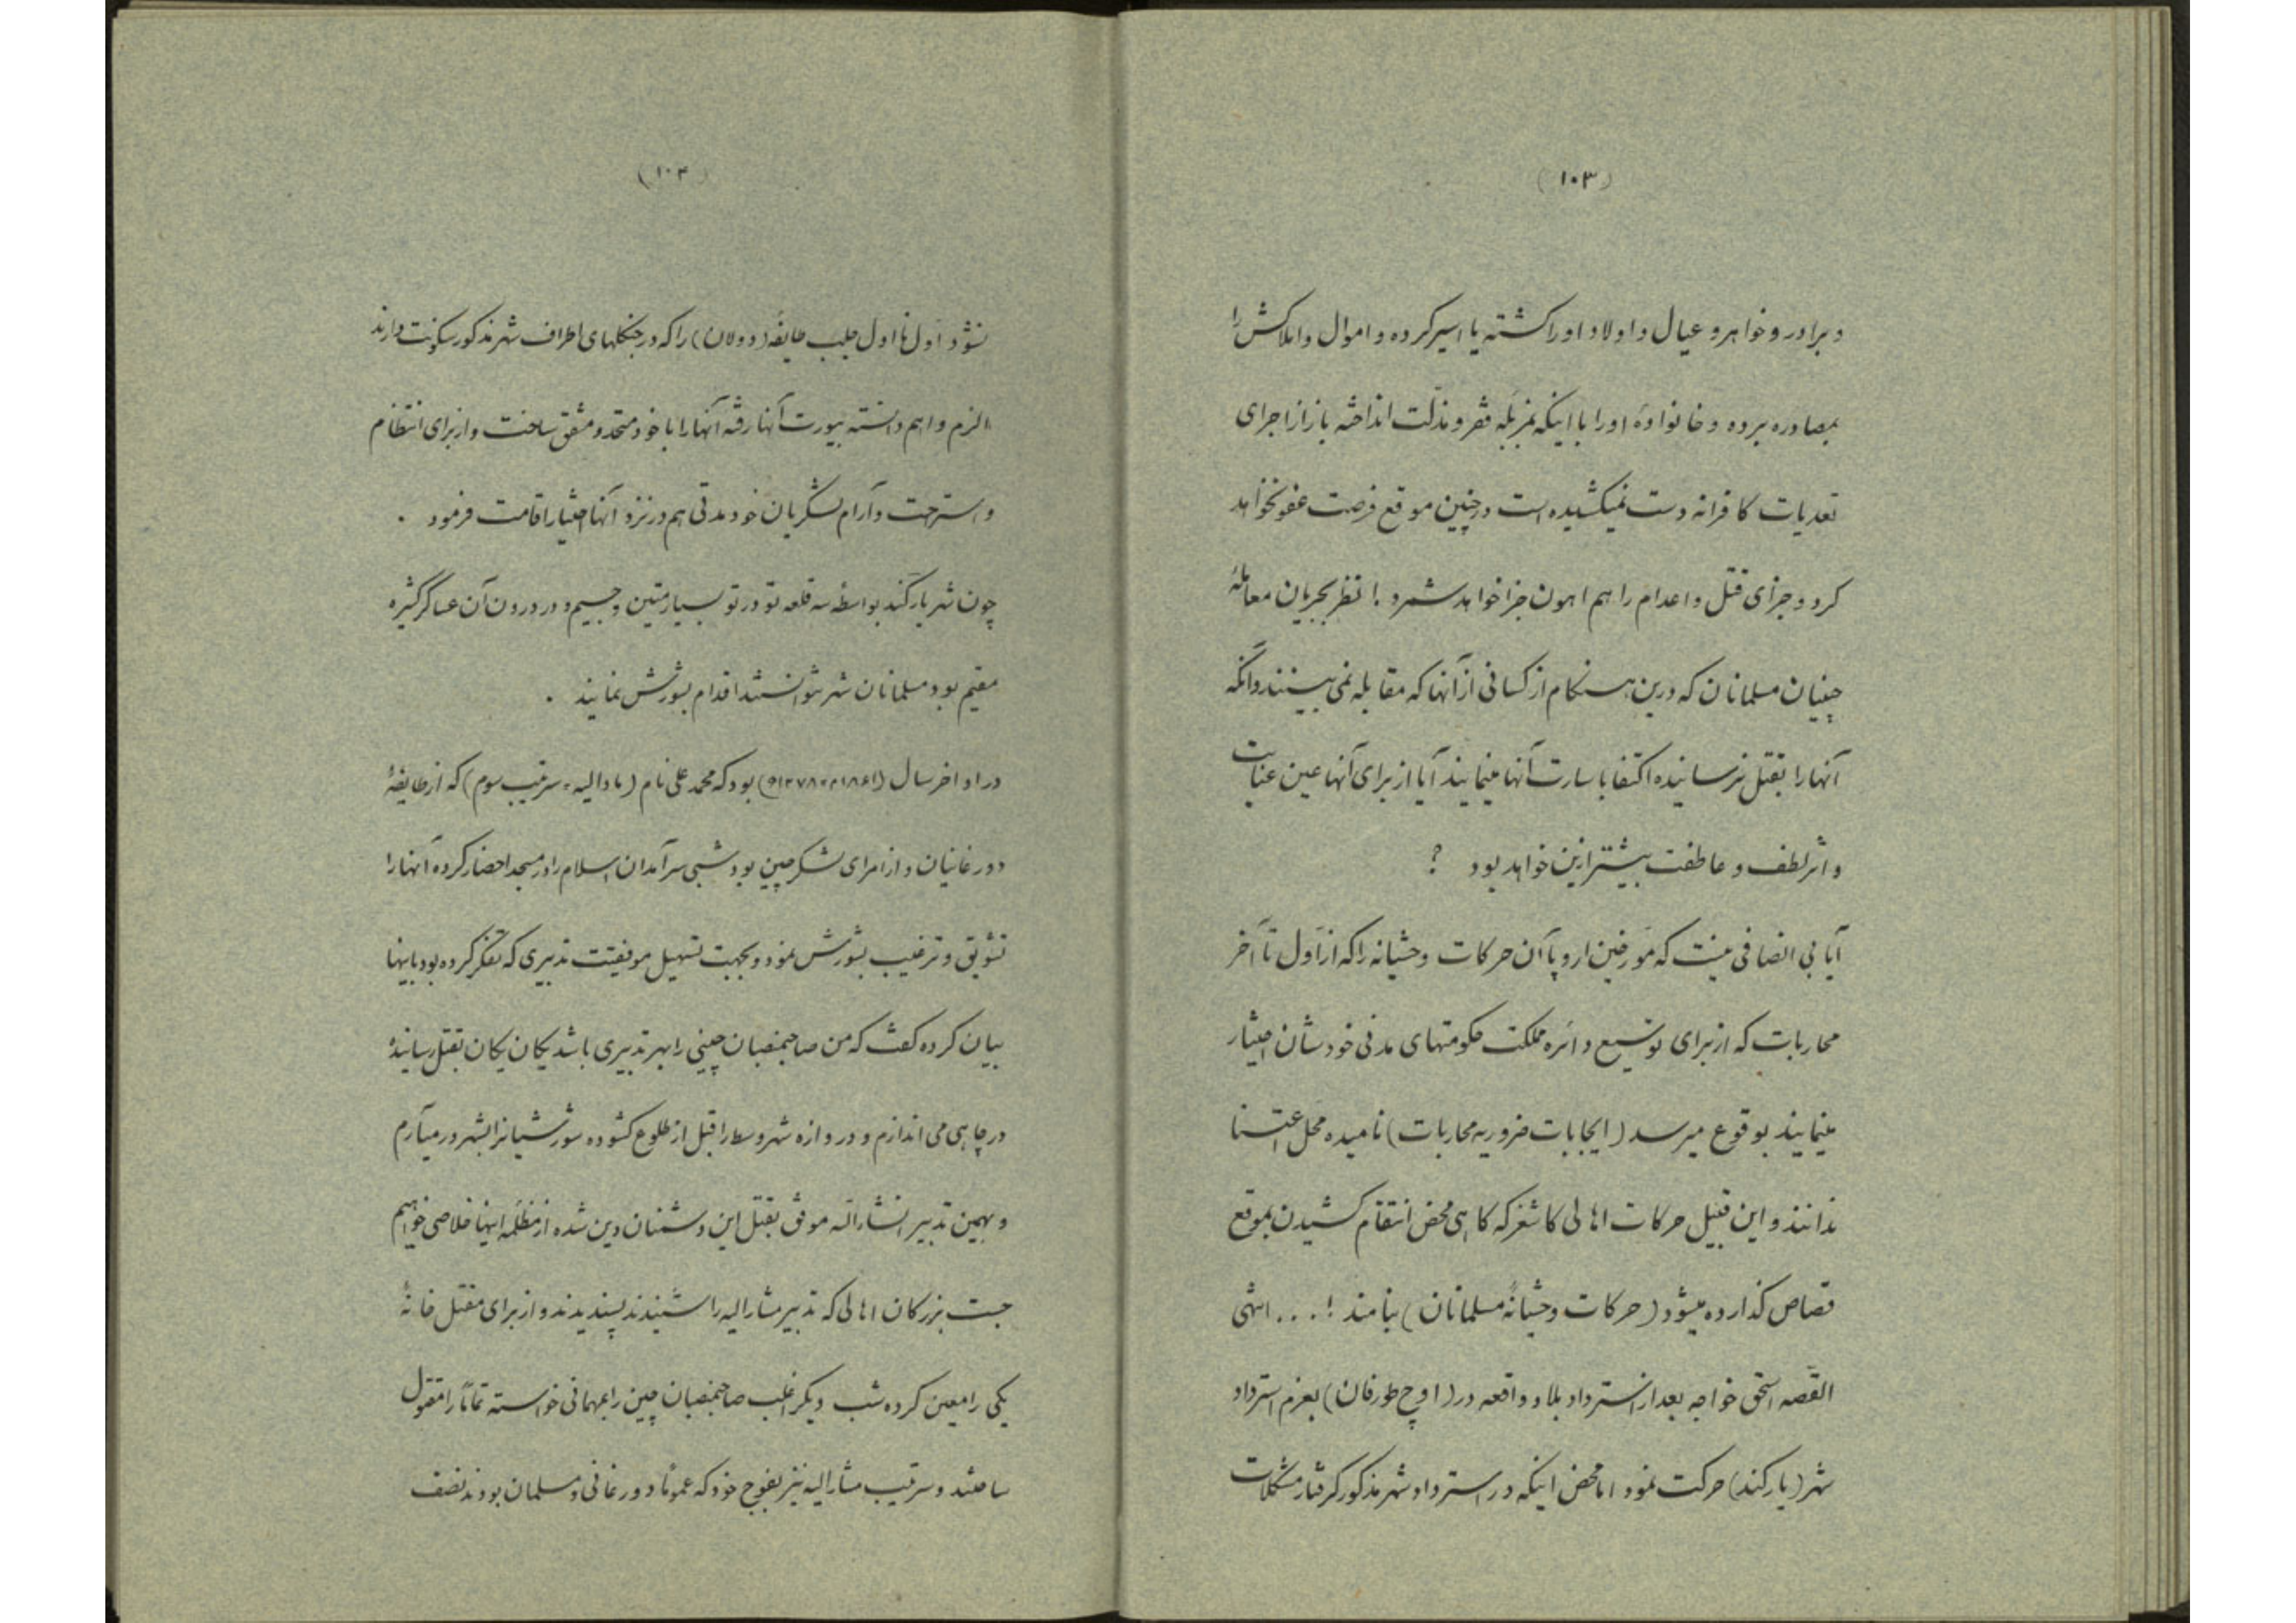 (۱۰۳)
و برادر و خواهر و عیال و اولاد او را کشته یا اسیر کرده و اموال و املاکش را
بمصادره برده و خانوادهٔ او را با اینکه بمزبلهٔ فقر و مذلت انداخته باز از اجرای
تعدیات کافرانه دست نمیکشیده است در چنین موقع فرصت عفو نخواهد
کرد و جزای قتل و اعدام را هم اهون جزا خواهد شمرد . ! نظر بجریان معاملهٔ
چینیان مسلمانان که درین هنگام از کسانی از آنها که مقابله نمی بینند و آنکه
آنها را بقتل نرسانیده اکتفا باسارت آنها مینمایند آیا از برای آنها عین عنایت
و اثر لطف و عاطفت بیشتر ازین خواهد بود ؟
آیا بی انصافی نیست که مورخین اروپا آن حرکات وحشیانه را که از اول تا آخر
محاربات که از برای توسیع دائره مملکت حکومتهای مدنی خودشان اختیار
مینمایند بوقوع میرسد (ایجابات ضروریه محاربات) نامیده محل اعتنا
ندانند و این قبیل حرکات اهالی کاشغر که کاهی محض انتقام کشیدن بموقع
قصاص کذارده میشود (حرکات وحشیانهٔ مسلمانان) بنامند ! . . . انتهی
القصه اسحق خواجه بعد از استرداد بلاد واقعه در (اوچ طورفان) بعزم استرداد
شهر (یارکند) حرکت نمود اما محض اینکه در استرداد شهر مذکور کرفتار مشکلات
(۱۰۴)
نشود اول تا اول جلب طایفهٔ (دولان) را که در جنکلهای اطراف شهر مذکور سکونت دارند
الزم و اهم دانسته بیورت آنها رفته آنها را با خود متحد و متفق ساخت و از برای انتظام
و استرحت و آرام لشکریان خود مدتی هم در نزد آنها اختیار اقامت فرمود .
چون شهر یارکند بواسطه سه قلعه تو در تو بسیار متین و جسیم و در درون آن عساکر کثیره
مقیم بود مسلمانان شهر نتوانستند اقدام بشورش نمایند .
در اواخر سال (۱۸۶۱م=۱۲۷۸ه) بود که محمد علی نام (مادالیه = سرتیب سوم) که از طایفهٔ
دورغانیان و از امرای لشکر چین بود شبی سرآمدان اسلام را در مسجد احضار کرده آنها را
تشویق و ترغیب بشورش نمود و بجهت تسهیل موفقیت تدبیری که تفکر کرده بود باینها
بیان کرده کفت که من صاحبمنصبان چینی را بهر تدبیری باشد یکان یکان بقتل رسانیده
در چاهی می اندازم و دروازه شهر وسط را قبل از طلوع کشوده شورشیانرا بشهر در میآرم
و بهمین تدبیر انشاءالله موفق بقتل این دشمنان دین شده از مظلمه اینها خلاصی خواهیم
جست بزرکان اهالی که تدبیر مشارالیه را شنیدند پسندیدند و از برای مقتل خانهٔ
یکی را معین کرده شب دیکر اغلب صاحبمنصبان چین را بمهمانی خواسته تماماً را مقتول
ساختند و سرتیب مشارالیه نیز بفوج خود که عموماً دورغانی و مسلمان بودند نصف